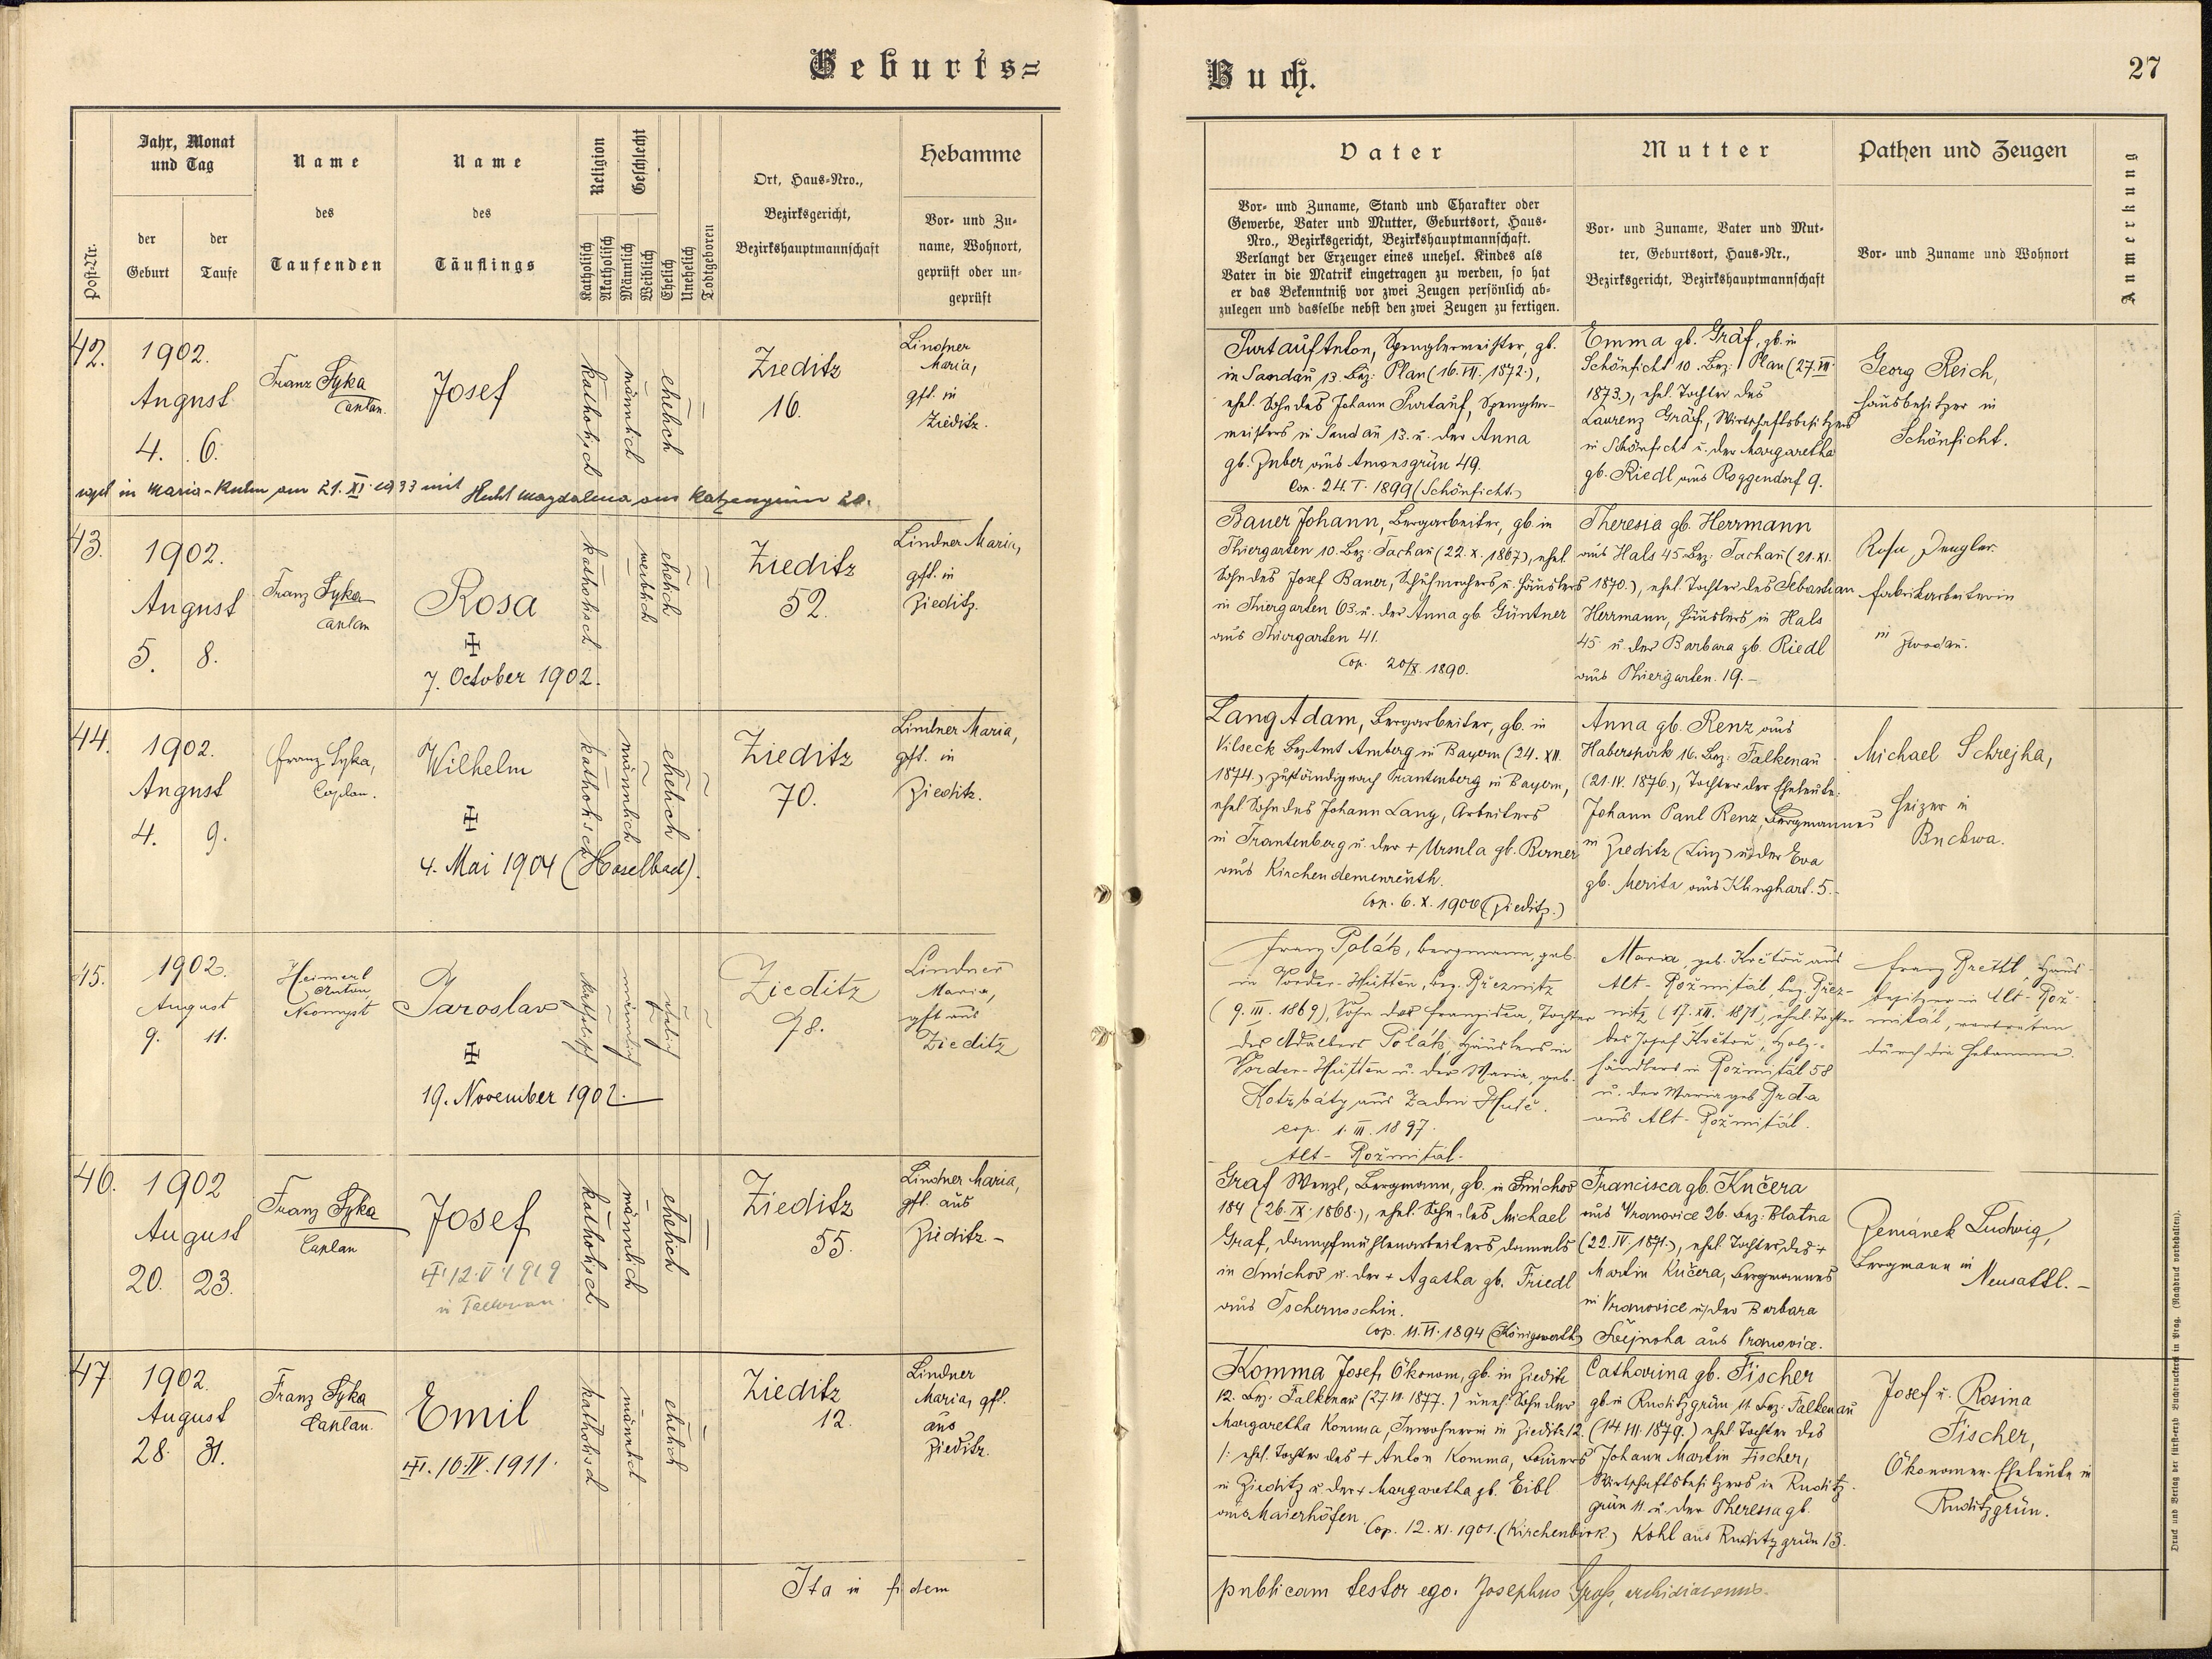 Geburts=
Buch.
27
Post-Nr.
Jahr, Monat
und Tag
der
Geburt
der
Taufe
Name
des
Taufenden
Name
des
Täuflings
Religion
Katholisch
Akatholisch
Geschlecht
Männlich
Weiblich
Ehelich
Unehelich
Todtgeboren
Ort, Haus-Nro.,
Bezirksgericht,
Bezirkshauptmannschaft
Hebamme
Vor- und Zu-
name, Wohnort,
geprüft oder un-
geprüft
Vater
Vor- und Zuname, Stand und Charakter oder
Gewerbe, Vater und Mutter, Geburtsort, Haus-
Nro., Bezirksgericht, Bezirkshauptmannschaft.
Verlangt der Erzeuger eines unehel. Kindes als
Vater in die Matrik eingetragen zu werden, so hat
er das Bekenntniß vor zwei Zeugen persönlich ab-
zulegen und dasselbe nebst den zwei Zeugen zu fertigen.
Mutter
Vor- und Zuname, Vater und Mut-
ter, Geburtsort, Haus-Nr.,
Bezirksgericht, Bezirkshauptmannschaft
Pathen und Zeugen
Vor- und Zuname und Wohnort
Anmerkung
42.
1902.
August
4. 6.
Franz Syka
Caplan.
Josef
katholisch
männlich
ehelich
Zieditz
16.
Lindner
Maria,
gft. in
Zieditz.
Purtauf Anton, Spenglermeister, gb.
in Sandau 13. Bez: Plan (16. VII. 1872.),
ehel. Sohn des Johann Purtauf, Spengler-
meisters in Sandau 13. u. der Anna
gb. Zuber aus Amonsgrün 49.
Cop. 24. I. 1899 (Schönficht.)
Emma gb. Gräf, gb. in
Schönficht 10. Bez: Plan (27. VII.
1873.), ehel. Tochter des
Laurenz Gräf, Wirtschaftsbesitzers
in Schönficht u. der Margaretha
gb. Riedl aus Roggendorf 9.
Georg Reich,
Hausbesitzer in
Schönficht.
in Maria-Kulm am 21. XI. 1933 mit Magdalena aus Katzengrün 20.
43.
1902.
August
5. 8.
Franz Syka
Caplan
Rosa
7. October 1902.
katholisch
weiblich
ehelich
Zieditz
52.
Lindner Maria,
gft. in
Zieditz.
Bauer Johann, Bergarbeiter, gb. in
Thiergarten 10. Bez: Tachau (22. X. 1867), ehel.
Sohn des Josef Bauer, Schuhmachers u. Häuslers
in Thiergarten 63. u. der Anna gb. Güntner
aus Thiergarten 41.
Cop. 20/X. 1890.
Theresia gb. Herrmann
aus Hals 45. Bez: Tachau (21. XI.
1870.), ehel. Tochter des Sebastian
Herrmann, Häuslers in Hals
45 u. der Barbara gb. Riedl
aus Thiergarten. 19.-
Rosa
Fabrikarbeiterin
in Zwodau.
44.
1902.
August
4. 9.
Franz Syka,
Caplan.
Wilhelm
4. Mai 1904 (Haselbad).
katholisch
männlich
ehelich
Zieditz
70.
Lindner Maria,
gft. in
Zieditz.
Lang Adam, Bergarbeiter, gb. in
Vilseck Bez. Amt Amberg in Bayern (24. XII.
1874.) zuständig nach Trautenberg in Bayern,
ehel. Sohn des Johann Lang, Arbeiters
in Trautenberg u. der + Ursula gb. Birner
aus Kirchendemenreuth.
Cop. 6. X. 1900 (Zieditz.)
Anna gb. Renz aus
Haberspirk 16. Bez: Falkenau
(21. IV. 1876.), Tochter der Eheleute:
Johann Paul Renz, Bergmannes
in Zieditz (Linz) u. der Eva
gb. Merita aus Klinghart. 5.-
Michael Schrejha,
Heizer in
Buckwa.
45.
1902.
August
9. 11.
Heimerl
Anton,
Neomyst
Jaroslav
19. November 1902.
katholisch
männlich
ehelich
Zieditz
78.
Lindner
Maria,
gft aus
Zieditz
Franz Polák, Bergmann, geb.
in Vorder-Hütten, Bez. Březnitz
(9. III. 1869), Sohn der Franziska, Tochter
des Adalbert Polák, Häuslers in
Vorder-Hütten u. der Maria, geb.
Kotrbatý aus Zadni Hutě.
cop. 1. III. 1897.
Alt-Rožmitál.
Maria, geb. Krčton aus
Alt-Rožmitál, Bez. Břez-
nitz (17. XII. 1871), ehel. Tochter
des Josef Krčton, Holz-
händlers in Rožmitál 58
u. der Maria geb Brda
aus Alt-Rožmitál.
Franz Haus-
besitzer in Alt-Rož-
mitál, vertreten
durch die Hebamme.
46.
1902
August
20. 23.
Franz Syka
Caplan
Josef
12. V. 1919
in Falkenau.
katholisch
männlich
ehelich
Zieditz
55.
Lindner Maria,
gft. aus
Zieditz.-
Graf Wenzl, Bergmann, gb. in Smíchov
184 (26. IX. 1868.), ehel. Sohn des Michael
Graf, Dampfmühlenarbeiters damals
in Smíchov u. der + Agatha gb. Friedl
aus Tschernoschin.
Cop. 11. VI. 1894 (Königswerth)
Francisca gb. Kučera
aus Vranovice 26. Bez: Blatna
(22. IV. 1871.), ehel. Tochter des +
Martin Kučera, Bergmannes
in Vranovice u. der Barbara
Švejnoha aus Vranovice.
Zemánek Ludwig,
Bergmann in
Neusattl.-
47
1902.
August
28. 31.
Franz Syka
Caplan.
Emil
10. IV. 1911.
katholisch
männlich
ehelich
Zieditz
12.
Lindner
Maria, gft.
aus
Zieditz.
Komma Josef, Ökonom, gb. in Zieditz
12. Bez: Falkenau (27. VI. 1877.) unehel. Sohn der
Margaretha Komma, Inwohnerin in Zieditz 12.
/: ehel. Tochter des + Anton Komma, Bauers
in Zieditz u. der + Margaretha gb. Eibl
aus Maierhöfen. Cop. 12. XI. 1901. (Kirchenbirk.)
Catharina gb. Fischer
gb. in Ruditzgrün 11. Bez: Falkenau
(14. VII. 1879.) ehel. Tochter des
Johann Martin Fischer,
Wirtschaftsbesitzers in Ruditz-
grün 11. u. der Theresia gb.
Kohl aus Ruditzgrün 13.
Josef u. Rosina
Fischer,
Ökonomen-Eheleute in
Ruditzgrün.
Ita in fidem
publicam testor ego. Josephus Groß, archidiaconus.
Druck und Verlag der fürst-erzb. Buchdruckerei in Prag. (Nachdruck vorbehalten).